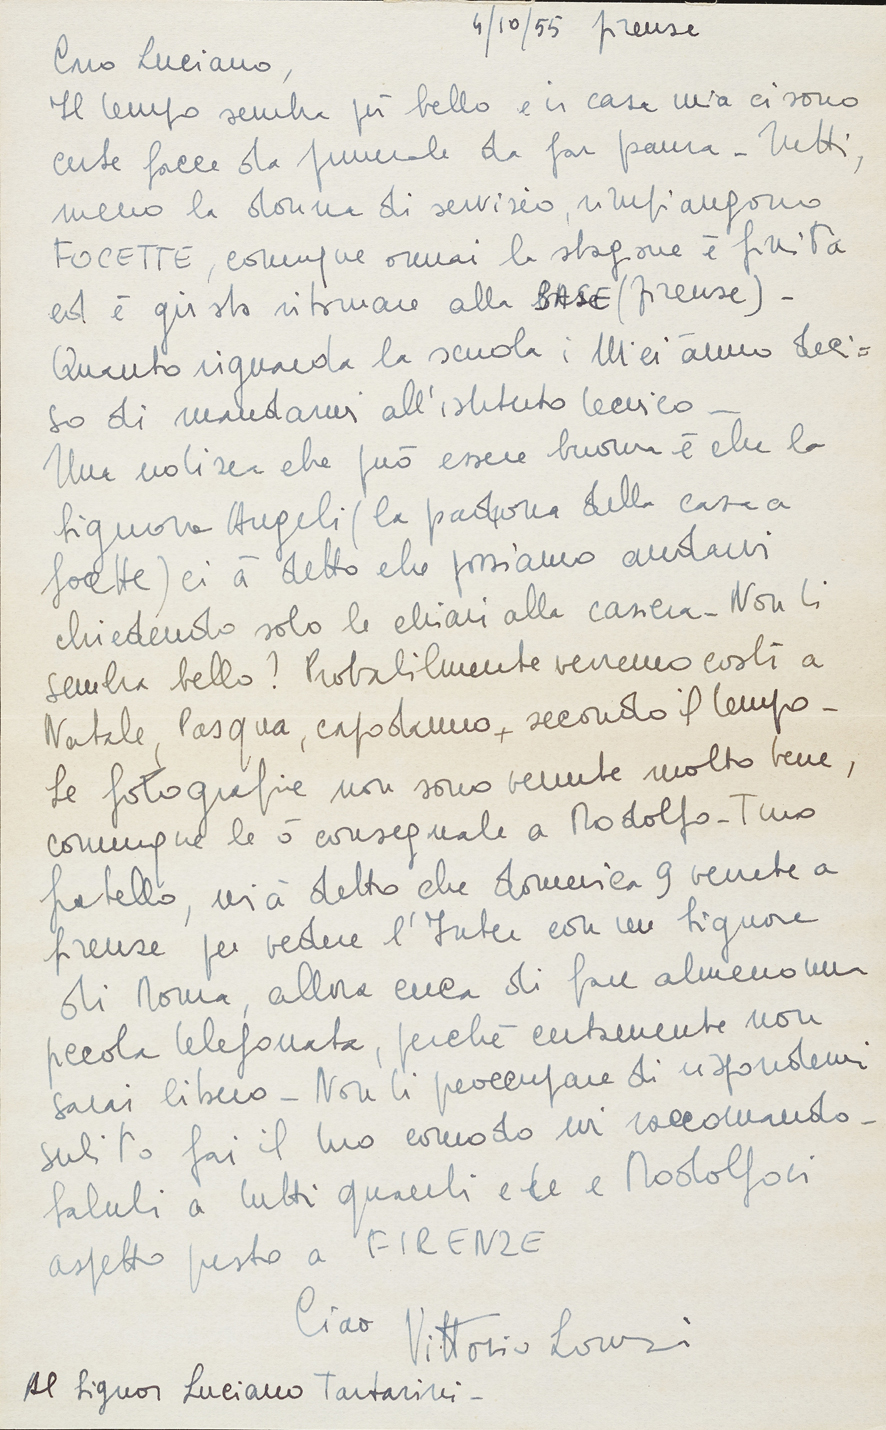 4/10/55 firense
Caro Luciano,
Il tempo sembra più bello e in casa mia ci sono
certe facce da funerale da far paura - Tutti,
meno la donna di servisio, rimpiangono
FOCETTE, comunque ormai la stagione è finita
ed è giusto ritornare alla BASE (firense) -
Quanto riguarda la scuola i Miei ànno deci=
so di mandarmi all'istituto tecnico -
Una notisia che può essere buona è che la
Signora Angeli (la padrona della casa a
focette) ci à detto che possiamo andarvi
chiedendo solo le chiavi alla casiera - Non ti
sembra bello? Probabilmente verremo costì a
Natale, Pasqua, capodanno, secondo il tempo -
Le fotografie non sono venute molto bene,
comunque le ò consegnate a Rodolfo - Tuo
fratello, mi à detto che domenica 9 verrete a
firense per vedere l'Inter con un Signore
di Roma, allora cerca di fare almeno una
piccola telefonata, perchè certamente non
sarai libero - Non ti preoccupare di rispondermi
subito fai il tuo comodo mi raccomando -
Saluti a tutti quanti e te e Rodolfo vi
aspetto presto a FIRENZE
Ciao Vittorio
Al Signor Luciano Tartarini -